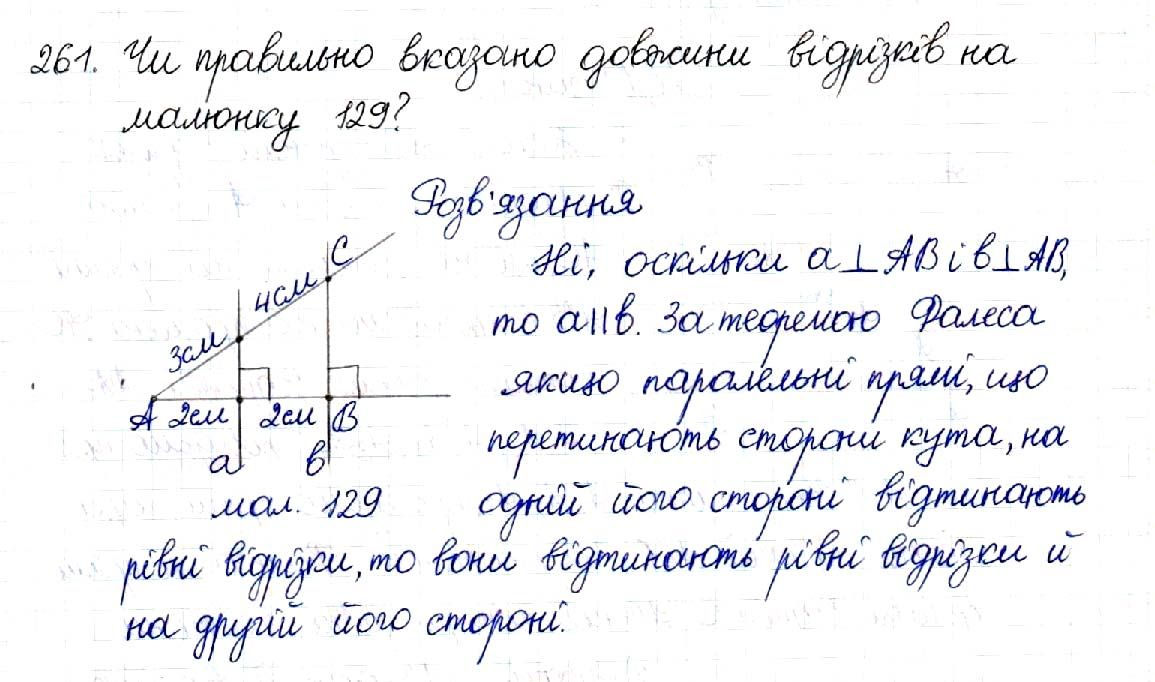 261. Чи правильно вказано довжини відрізків на
малюнку 129?
Розв'язання
C
4см
3см
A 2см 2см B
a
в
мал. 129
Ні, оскільки a⊥AB і в⊥AB,
то a||в. За теоремою Фалеса
якщо паралельні прямі, що
перетинають сторони кута, на
одній його стороні відтинають
рівні відрізки, то вони відтинають рівні відрізки й
на другій його стороні.